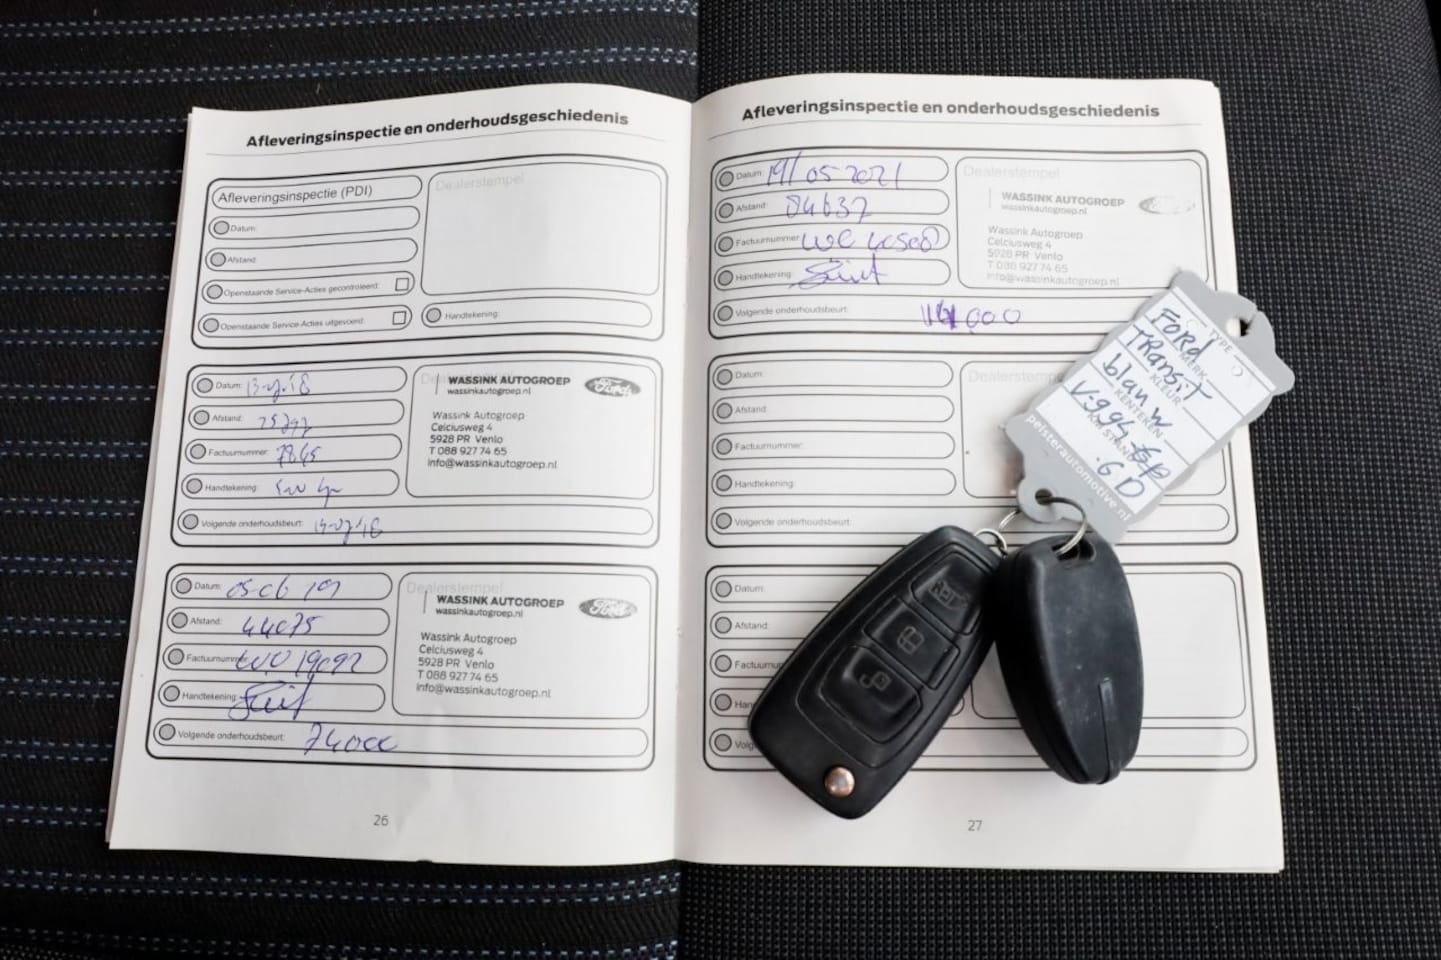 Afleveringsinspectie en onderhoudsgeschiedenis
Afleveringsinspectie (PDI)
Dealerstempel
Datum:
Afstand:
Openstaande Service-Acties gecontroleerd:
Openstaande Service-Acties uitgevoerd:
Handtekening:
Datum:
Afstand:
Factuurnummer:
Handtekening:
Volgende onderhoudsbeurt:
WASSINK AUTOGROEP
wassinkautogroep.nl
Ford
Wassink Autogroep
Celciusweg 4
5928 PR Venlo
T 088 927 74 65
info@wassinkautogroep.nl
Datum: 05-06 19
Afstand: 44075
Factuurnummer: WO 19092
Handtekening:
Volgende onderhoudsbeurt: 74000
Dealerstempel
WASSINK AUTOGROEP
wassinkautogroep.nl
Ford
Wassink Autogroep
Celciusweg 4
5928 PR Venlo
T 088 927 74 65
info@wassinkautogroep.nl
26
Afleveringsinspectie en onderhoudsgeschiedenis
Datum: 19/05-2021
Afstand: 84637
Factuurnummer:
Handtekening:
Volgende onderhoudsbeurt:
Dealerstempel
WASSINK AUTOGROEP
wassinkautogroep.nl
Wassink Autogroep
Celciusweg 4
5928 PR Venlo
T 088 927 74 65
info@wassinkautogroep.nl
Datum:
Afstand:
Factuurnummer:
Handtekening:
Volgende onderhoudsbeurt:
Datum:
Afstand:
27
TYPE
MERK
KLEUR
KENTEKEN
Ford
TRansit
blauw
6D
pelsterautomotive.nl